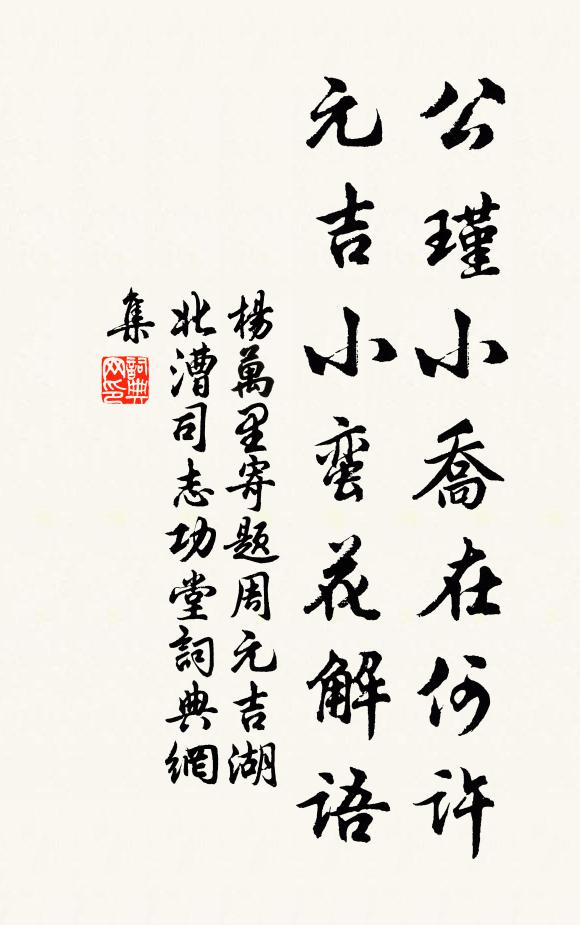 公瑾小喬在何许
元吉小蛮花解语
楊萬里寄题周元吉湖
北漕司志功堂詞典網
集
詞典
网印